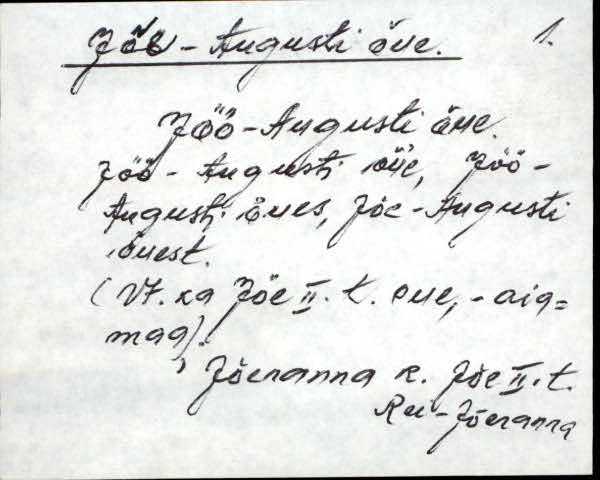 Jõe-Augusti õue. 1.
Jöö-Augusti õue.
Jöö-Augusti õue, Jöö-
Augusti õues, Jõe-Augusti
õuest.
(Vt. ka Jõe II. t. õue, -aia=
maa).
Jõeranna k. Jõe II. t.
Rei-Jõeranna